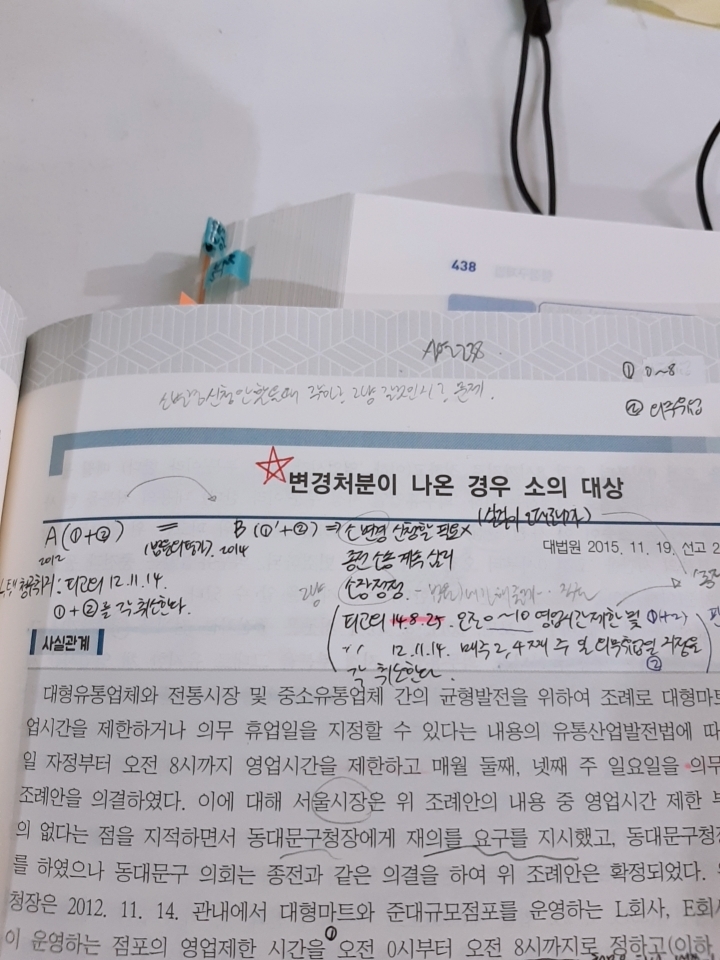 438
① 0~8
② 의무휴업
변경처분이 나온 경우 소의 대상
A(①+②) = B(①'+②) ⇒ 소변경 신청할 필요X
2012
2014
종전소송 계속 심리
대법원 2015. 11. 19. 선고 2
소장정정
12. 11. 14.
①+②을 각 취소한다.
피고의 14. 8. 25. 오전 0~10 영업시간제한 및
12. 11. 14. 매주 2, 4째 주 일 의무휴업일 지정을
②
각 취소한다.
사실관계
대형유통업체와 전통시장 및 중소유통업체 간의 균형발전을 위하여 조례로 대형마트
업시간을 제한하거나 의무 휴업일을 지정할 수 있다는 내용의 유통산업발전법에 따
일 자정부터 오전 8시까지 영업시간을 제한하고 매월 둘째, 넷째 주 일요일을 의무
조례안을 의결하였다. 이에 대해 서울시장은 위 조례안의 내용 중 영업시간 제한 부
의 없다는 점을 지적하면서 동대문구청장에게 재의를 요구를 지시했고, 동대문구청장
를 하였으나 동대문구 의회는 종전과 같은 의결을 하여 위 조례안은 확정되었다.
청장은 2012. 11. 14. 관내에서 대형마트와 준대규모점포를 운영하는 L회사, E회사
①
이 운영하는 점포의 영업제한 시간을 오전 0시부터 오전 8시까지로 정하고(이하